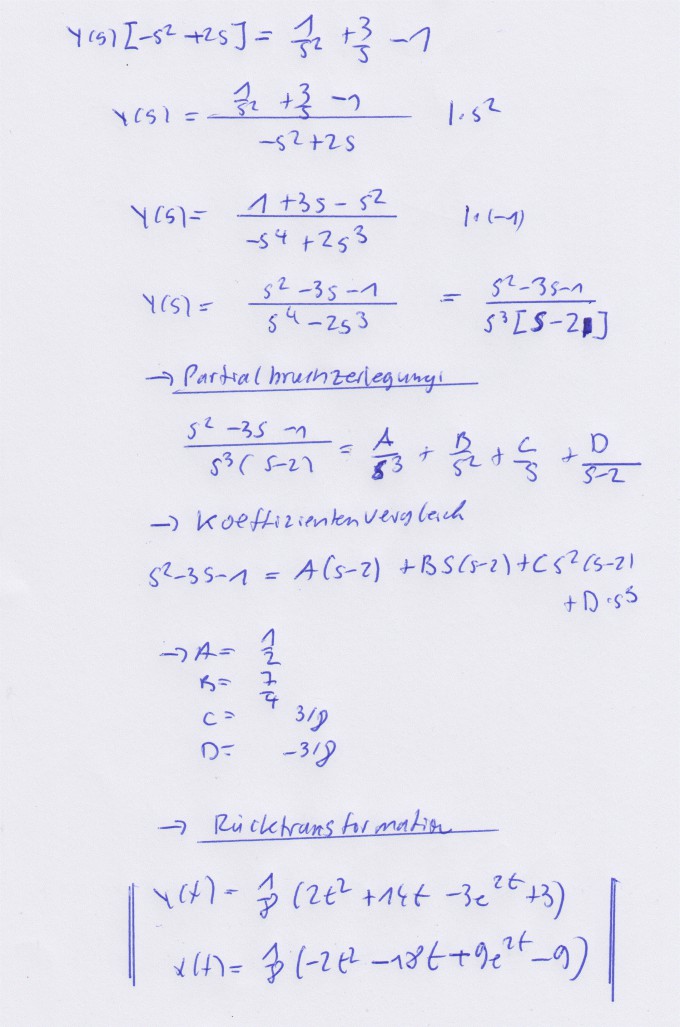 Y(s) [-s² + 2s] = 1/s² + 3/s - 1
Y(s) = (1/s² + 3/s - 1)/(-s² + 2s) | · s²
Y(s) = (1 + 3s - s²)/(-s⁴ + 2s³) | · (-1)
Y(s) = (s² - 3s - 1)/(s⁴ - 2s³) = (s² - 3s - 1)/(s³[s - 2])
→ Partialbruchzerlegung:
(s² - 3s - 1)/(s³(s - 2)) = A/s³ + B/s² + C/s + D/(s - 2)
→ Koeffizientenvergleich
s² - 3s - 1 = A(s - 2) + Bs(s - 2) + Cs²(s - 2)
+ D · s³
→ A = 1/2
B = 7/4
C = 3/8
D = -3/8
→ Rücktransformation
y(t) = 1/8 (2t² + 14t - 3e^2t + 3)
x(t) = 1/8 (-2t² - 18t + 9e^2t - 9)